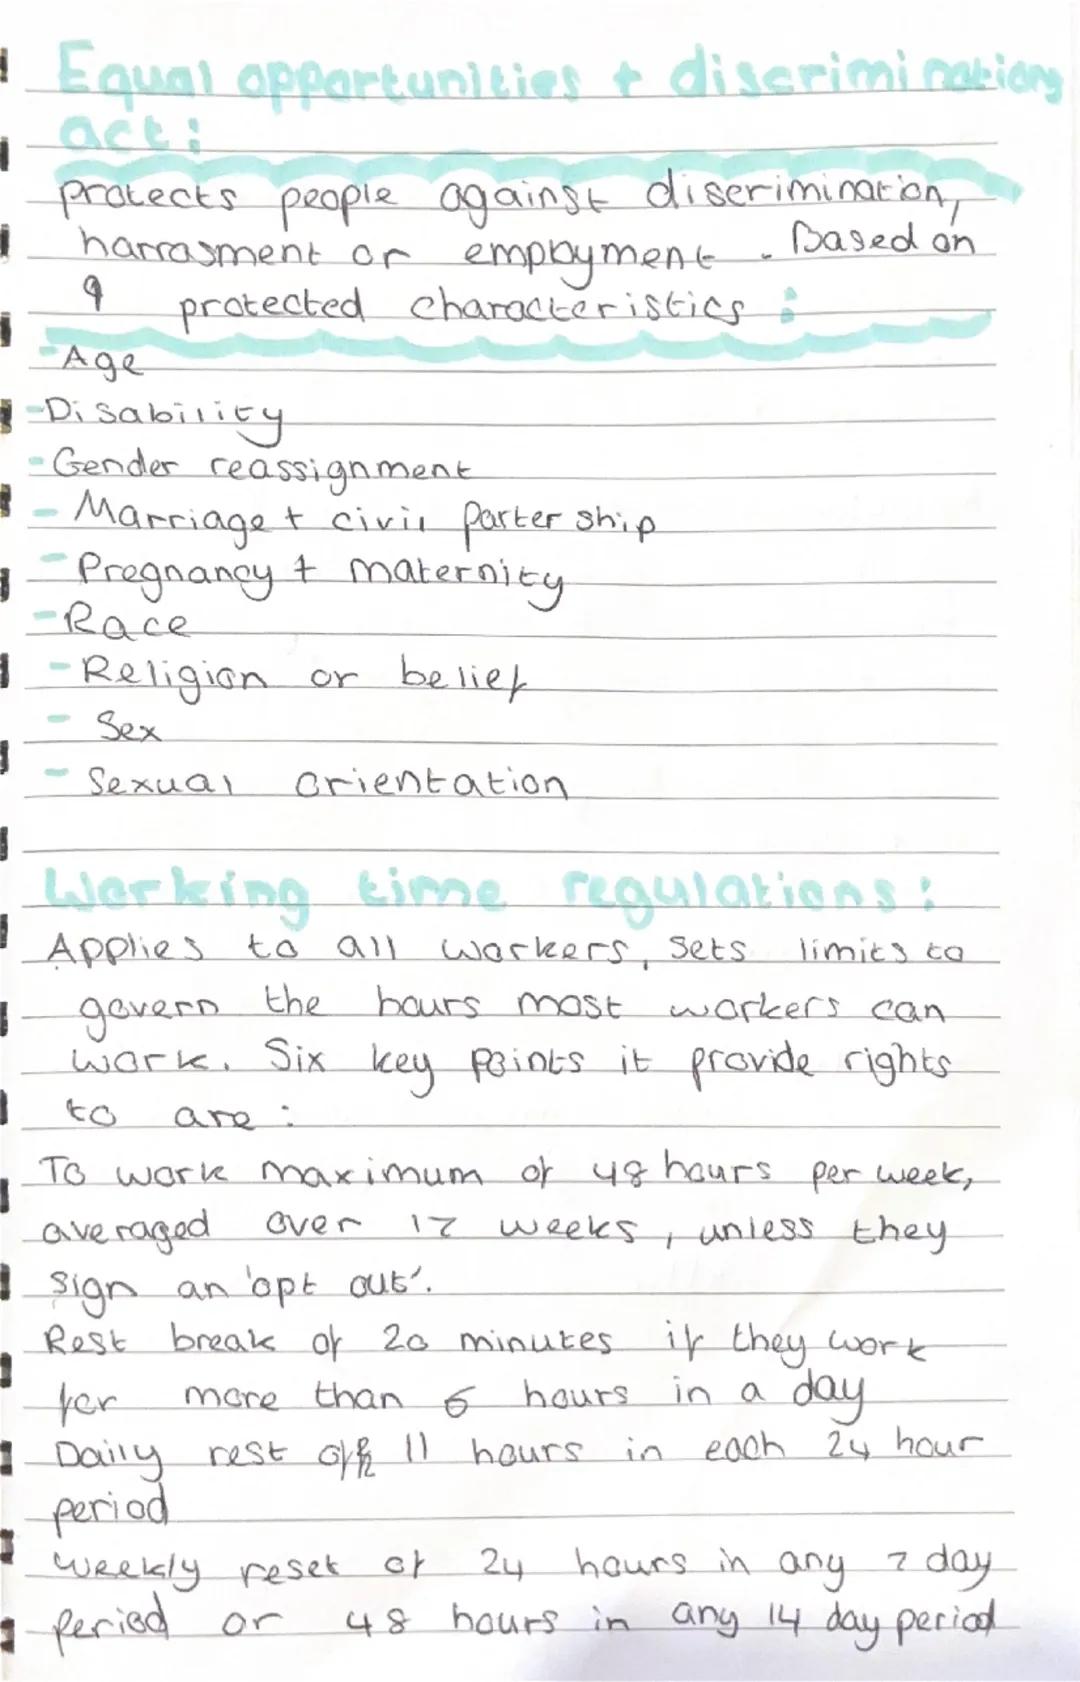 Equal opportunities + discriminations
act:
protects people against discrimination,
harrasment or employment. Based on
9 protected characteristics:
- Age
- Disability
- Gender reassignment
- Marriage + civil partership
- Pregnancy + maternity
- Race
- Religion or belief
- Sex
- Sexual orientation
Working time regulations:
Applies to all workers, sets limits to
govern the hours most workers can
work. Six key points it provide rights
to are:
To work maximum of 48 hours per week,
averaged over 17 weeks, unless they
sign an 'opt out'.
Rest break of 20 minutes if they work
for more than 6 hours in a day
Daily rest of 11 hours in each 24 hour
period
Weekly reset of 24 hours in any 7 day
period or 48 hours in any 14 day period